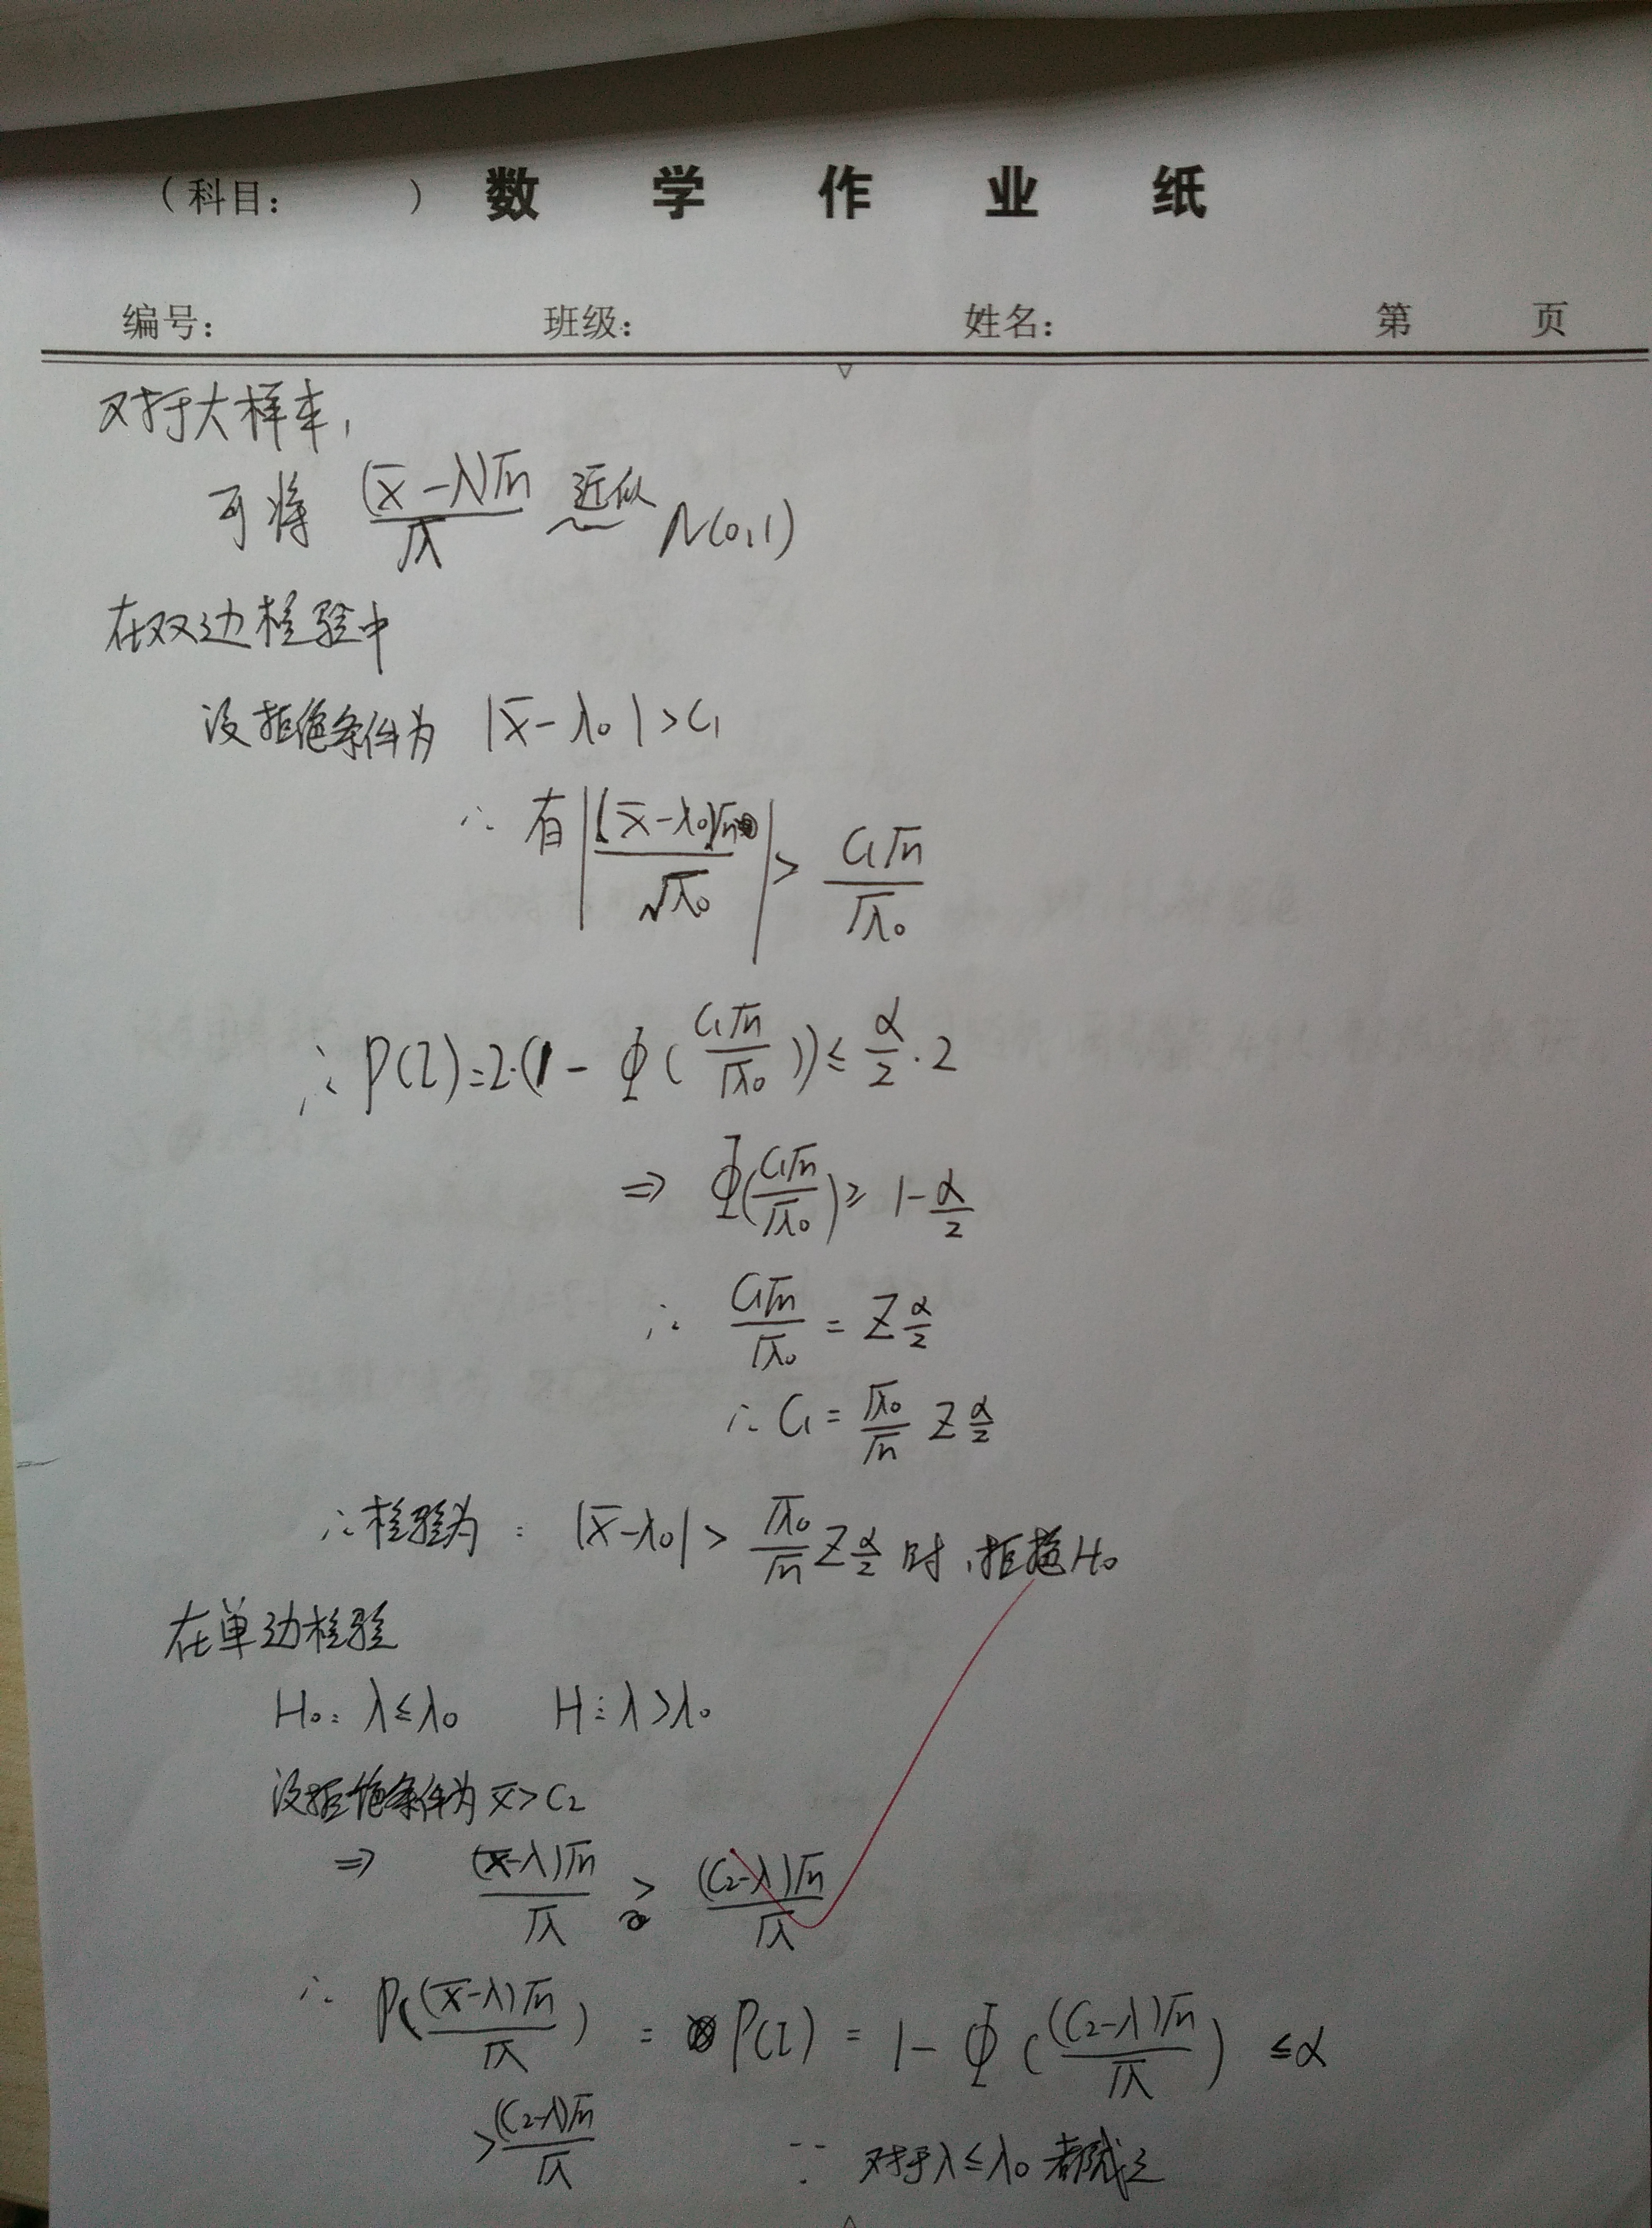 (科目: ) 数学作业纸
编号: 班级: 姓名: 第 页
对于大样本,
可将 (x̄-λ)√n/√λ 近似 N(0,1)
在双边检验中
设拒绝条件为 |x̄-λ₀|>C₁
∴有|(x̄-λ₀)√n/√λ₀| > C₁√n/√λ₀
∴P(I)=2·(1-Φ(C₁√n/√λ₀))≤α/2·2
⇒ Φ(C₁√n/√λ₀)≥1-α/2
∴ C₁√n/√λ₀ = Z α/2
∴ C₁ = √λ₀/√n Z α/2
∴检验为: |x̄-λ₀| > √λ₀/√n Z α/2 时,拒绝H₀
在单边检验
H₀: λ≤λ₀ H₁: λ>λ₀
设拒绝条件为 x̄>C₂
⇒ (x̄-λ)√n/√λ > (C₂-λ)√n/√λ
∴ P((x̄-λ)√n/√λ) = P(I) = 1-Φ((C₂-λ)√n/√λ) ≤α
>(C₂-λ)√n/√λ ∵ 对于λ≤λ₀都成立